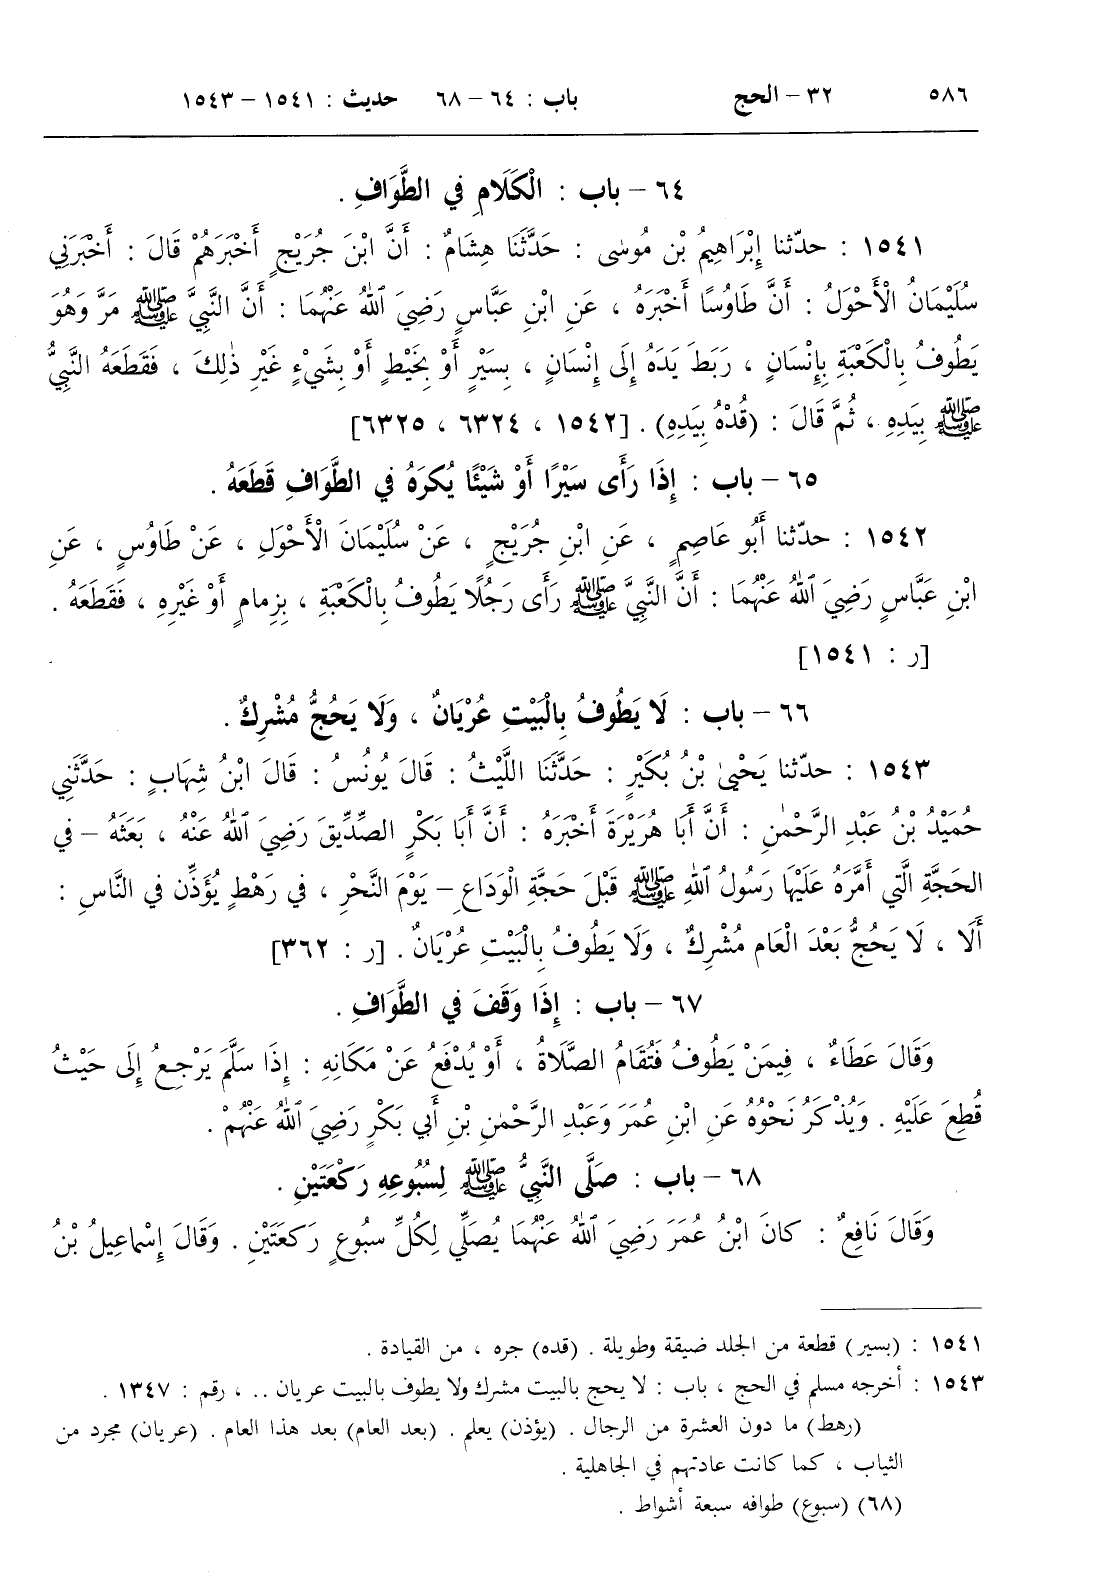 ٥٨٦ ٣٢ – الحج باب : ٦٤ – ٦٨ حديث : ١٥٤١ – ١٥٤٣
٦٤ – باب : الْكَلَامِ فِي الطَّوَافِ .
١٥٤١ : حدّثنا إِبْرَاهِيمُ بْنُ مُوسٰى : حَدَّثَنَا هِشَامٌ : أَنَّ ابْنَ جُرَيْجٍ أَخْبَرَهُمْ قَالَ : أَخْبَرَنِي
سُلَيْمَانُ الْأَحْوَلُ : أَنَّ طَاوُسًا أَخْبَرَهُ ، عَنِ ابْنِ عَبَّاسٍ رَضِيَ ٱللهُ عَنْهُمَا : أَنَّ النَّبِيَّ ﷺ مَرَّ وَهُوَ
يَطُوفُ بِالْكَعْبَةِ بِإِنْسَانٍ ، رَبَطَ يَدَهُ إِلَى إِنْسَانٍ ، بِسَيْرٍ أَوْ بِخَيْطٍ أَوْ بِشَيْءٍ غَيْرِ ذٰلِكَ ، فَقَطَعَهُ النَّبِيُّ
ﷺ بِيَدِهِ ، ثُمَّ قَالَ : (قُدْهُ بِيَدِهِ) . [١٥٤٢ ، ٦٣٢٤ ، ٦٣٢٥]
٦٥ – باب : إِذَا رَأَى سَيْرًا أَوْ شَيْئًا يُكرَهُ فِي الطَّوَافِ قَطَعَهُ .
١٥٤٢ : حدّثنا أَبُو عَاصِمٍ ، عَنِ ابْنِ جُرَيْجٍ ، عَنْ سُلَيْمَانَ الْأَحْوَلِ ، عَنْ طَاوُسٍ ، عَنِ
ابْنِ عَبَّاسٍ رَضِيَ ٱللهُ عَنْهُمَا : أَنَّ النَّبِيَّ ﷺ رَأَى رَجُلًا يَطُوفُ بِالْكَعْبَةِ ، بِزِمامٍ أَوْ غَيْرِهِ ، فَقَطَعَهُ .
[ر : ١٥٤١]
٦٦ – باب : لَا يَطُوفُ بِالْبَيْتِ عُرْيَانٌ ، وَلَا يَحُجُّ مُشْرِكٌ .
١٥٤٣ : حدّثنا يَحْيىٰ بْنُ بُكَيْرٍ : حَدَّثَنَا اللَّيْثُ : قَالَ يُونُسُ : قَالَ ابْنُ شِهَابٍ : حَدَّثَنِي
حُمَيْدُ بْنُ عَبْدِ الرَّحْمٰنِ : أَنَّ أَبَا هُرَيْرَةَ أَخْبَرَهُ : أَنَّ أَبَا بَكْرٍ الصِّدِّيقَ رَضِيَ ٱللهُ عَنْهُ ، بَعَثَهُ – في
الحَجَّةِ الَّتِي أَمَّرَهُ عَلَيْهَا رَسُولُ ٱللهِ ﷺ قَبْلَ حَجَّةِ الْوَدَاعِ – يَوْمَ النَّحْرِ ، في رَهْطٍ يُؤَذِّن في النَّاسِ :
أَلَا ، لَا يَحُجُّ بَعْدَ الْعَامِ مُشْرِكٌ ، وَلَا يَطُوفُ بِالْبَيْتِ عُرْيَانٌ . [ر : ٣٦٢]
٦٧ – باب : إِذَا وَقَفَ فِي الطَّوَافِ .
وَقَالَ عَطَاءٌ ، فِيمَنْ يَطُوفُ فَتُقَامُ الصَّلَاةُ ، أَوْ يُدْفَعُ عَنْ مَكَانِهِ : إِذَا سَلَّمَ يَرْجِعُ إِلَى حَيْثُ
قُطِعَ عَلَيْهِ . وَيُذْكَرُ نَحْوُهُ عَنِ ابْنِ عُمَرَ وَعَبْدِ الرَّحْمٰنِ بْنِ أَبِي بَكْرٍ رَضِيَ ٱللهُ عَنْهُمْ .
٦٨ – باب : صَلَّى النَّبِيُّ ﷺ لِسُبُوعِهِ رَكْعَتَيْنِ .
وَقَالَ نَافِعٌ : كانَ ابْنُ عُمَرَ رَضِيَ ٱللهُ عَنْهُمَا يُصَلِّي لِكُلِّ سبُوعٍ رَكعَتَيْنِ . وَقَالَ إِسْماعِيلُ بْنُ
١٥٤١ : (بسير) قطعة من الجلد ضيقة وطويلة . (قده) جره ، من القيادة .
١٥٤٣ : أخرجه مسلم في الحج ، باب : لا يحج بالبيت مشرك ولا يطوف بالبيت عريان .. ، رقم : ١٣٤٧ .
(رهط) ما دون العشرة من الرجال . (يؤذن) يعلم . (بعد العام) بعد هذا العام . (عريان) مجرد من
الثياب ، كما كانت عادتهم في الجاهلية .
(٦٨) (سبوع) طوافه سبعة أشواط .